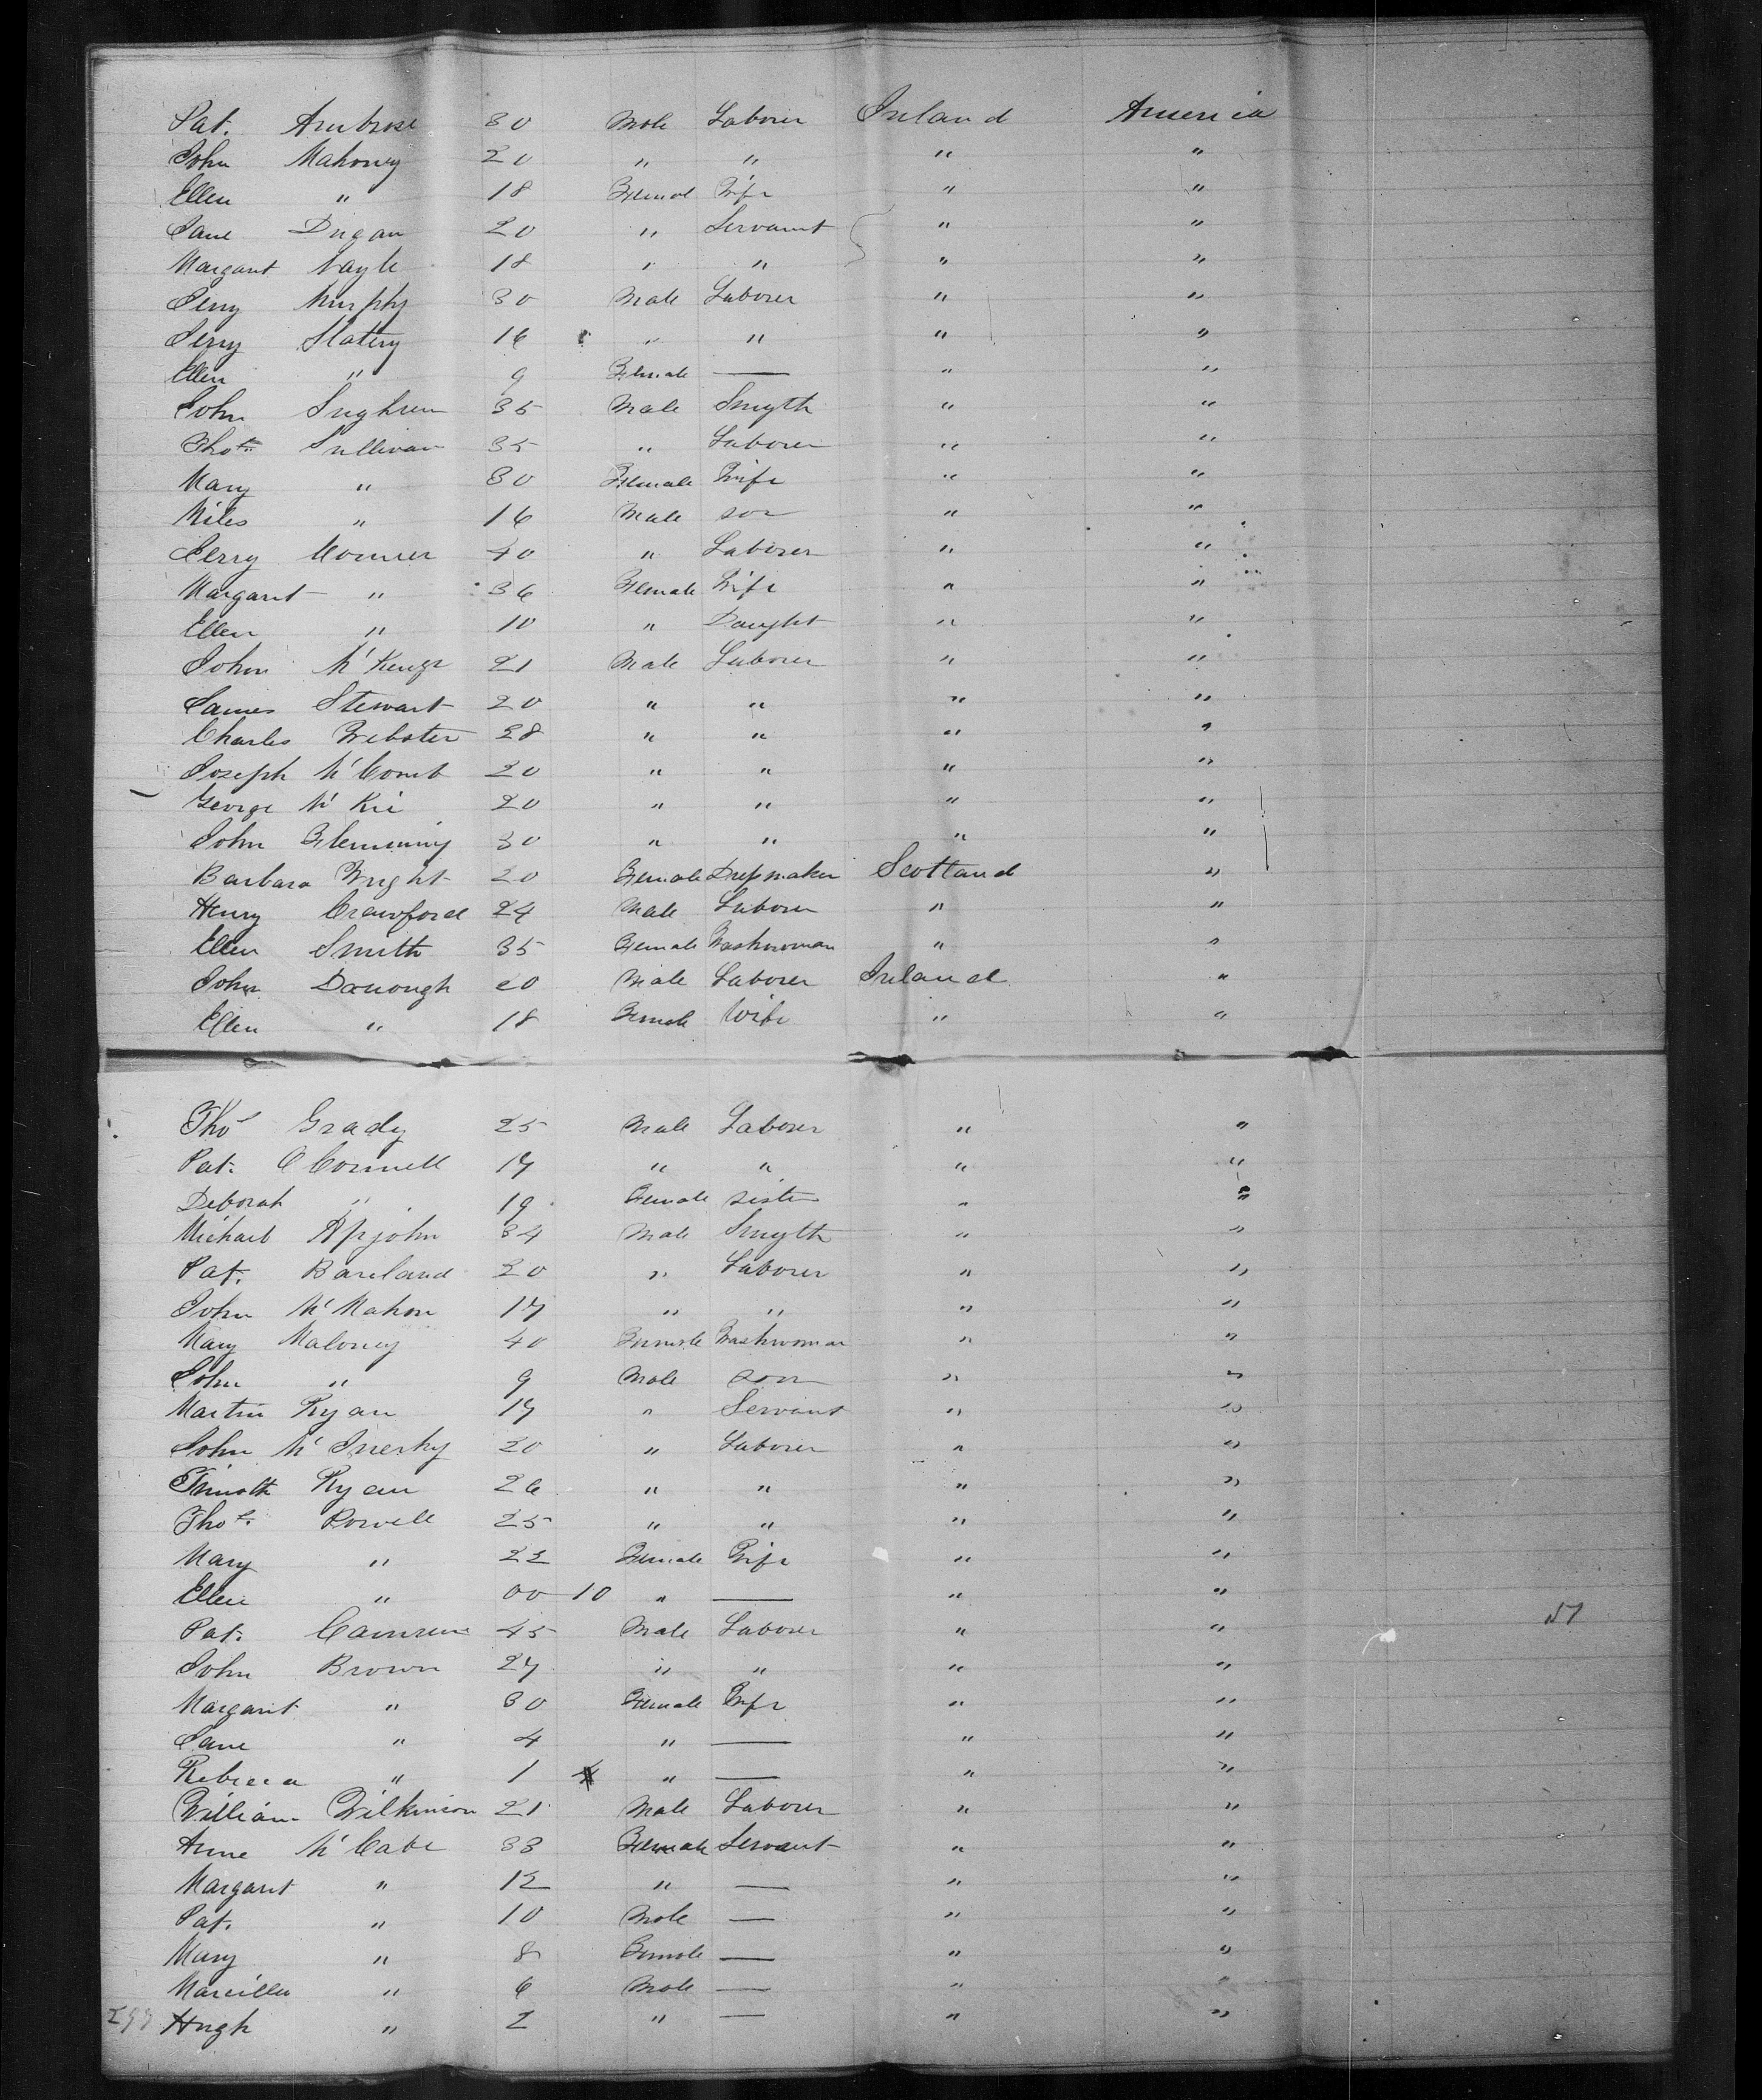 Pat. Ambrose 30 Male Laborer Ireland America
John Mahoney 20 " " " "
Ellen " 18 Female Wife " "
Jane Dugan 20 " Servant " "
Margaret 18 " " " "
Jerry Murphy 30 Male Laborer " "
Jerry Slatery 16 " " " "
Ellen " 9 Female — " "
John 35 Male Smyth " "
Thos. Sullivan 35 " Laborer " "
Mary " 30 Female Wife " "
Miles " 16 Male son " "
Jerry 40 " Laborer " "
Margaret " 36 Female Wife " "
Ellen " 10 " Daught " "
John 21 Male Laborer " "
James Stewart 20 " " " "
Charles Webster 28 " " " "
Joseph McComb 20 " " " "
George McKie 20 " " " "
John Flemming 30 " " " "
Barbara Wright 20 Female Dressmaker Scotland "
Henry Crawford 24 Male Laborer " "
Ellen Smith 35 Female Washwoman " "
John Donough 20 Male Laborer Ireland "
Ellen " 18 Female Wife " "
Thos Grady 25 Male Laborer " "
Pat. O Connell 17 " " " "
Deborah " 19 Female sister " "
Michael Apjohn 34 Male Smyth " "
Pat. 20 " Laborer " "
John McMahon 17 " " " "
Mary Maloney 40 Female Washwoman " "
John " 9 Male son " "
Martin Ryan 17 " Servant " "
John 20 " Laborer " "
Timoth Ryan 26 " " " "
Thos. Powell 25 " " " "
Mary " 22 Female Wife " "
Ellen " 00 10 " — " "
Pat. 45 Male Laborer " "
John Brown 27 " " " "
Margaret " 30 Female Wife " "
Jane " 4 " — " "
Rebecca " 1 " — " "
William Wilkinson 21 Male Laborer " "
Anne McCabe 33 Female Servant " "
Margaret " 12 " — " "
Pat. " 10 Male — " "
Mary " 8 Female — " "
" 6 Male — " "
Hugh " 2 " — " "